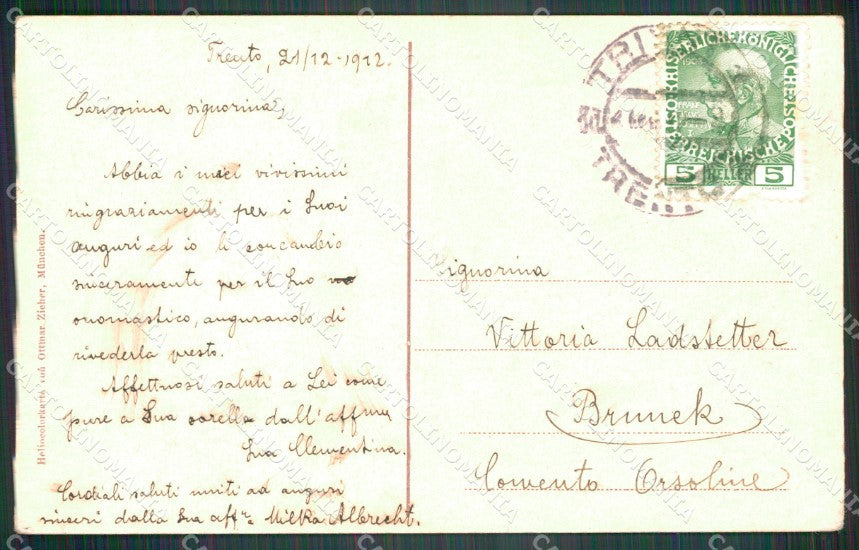 Trento, 21/12-1912.
Carissima signorina,
Abbia i miei vivissimi
ringraziamenti per i Suoi
auguri ed io li contraccambio
sinceramente per il Suo
onomastico, augurando di
rivederla presto.
Affettuosi saluti a Lei come
pure a Sua sorella dall'affma
Sua Clementina.
Cordiali saluti uniti ad auguri
sinceri dalla Sua affma Milka Albrecht.
Heliocolorkarte von Ottmar Zieher, München.
TRIENT
TRENTO
KAISERLICHE KÖNIGLICHE
ÖSTERREICHISCHE
5 HELLER 5
Signorina
Vittoria Ladstetter
Bruneck
Convento Orsoline
CARTOLINOMANIA